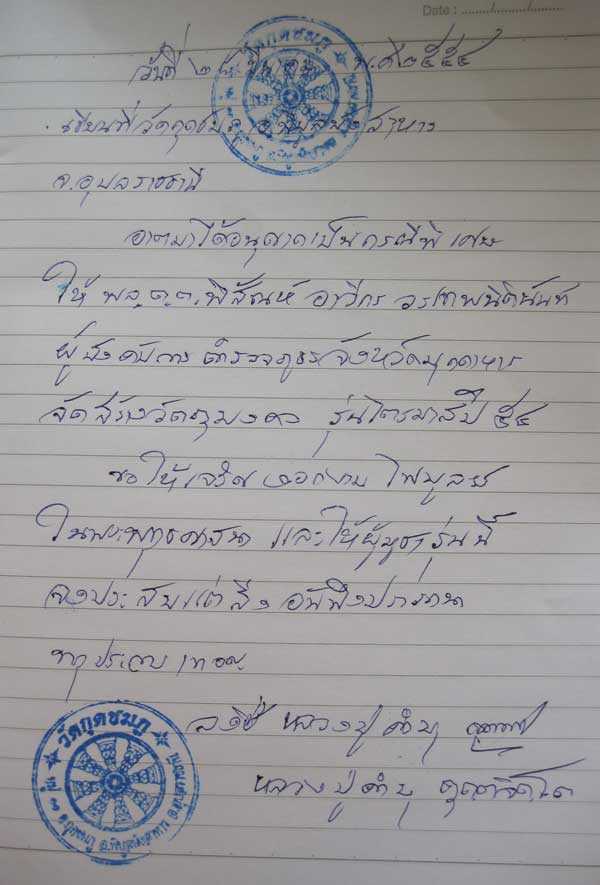 Date : ......../........../..........
วันที่ ๒๘ มีนาคม พ.ศ ๒๕๕๔
เขียนที่วัดกุดชมภู อ.พิบูลมังสาหาร
จ.อุบลราชธานี
อาตมาได้อนุญาตเป็นกรณีพิเศษ
ให้ พล.ต.ต.พิสัณห์ อาวีกร วรเทพนิตินันท์
ผู้บังคับการตำรวจภูธรจังหวัดมุกดาหาร
จัดสร้างวัตถุมงคล รุ่นไตรมาสปี ๕๔
ขอให้เจริญงอกงามไพบูลย์
ในพระพุทธศาสนา และให้ผู้บูชารุ่นนี้
จงประสบแต่สิ่งอันพึงปรารถนา
ทุกประการ เทอญ.
ลงชื่อ หลวงปู่คำบุ
หลวงปู่คำบุ คุตฺตจิตฺโต
วัดกุดชมภู